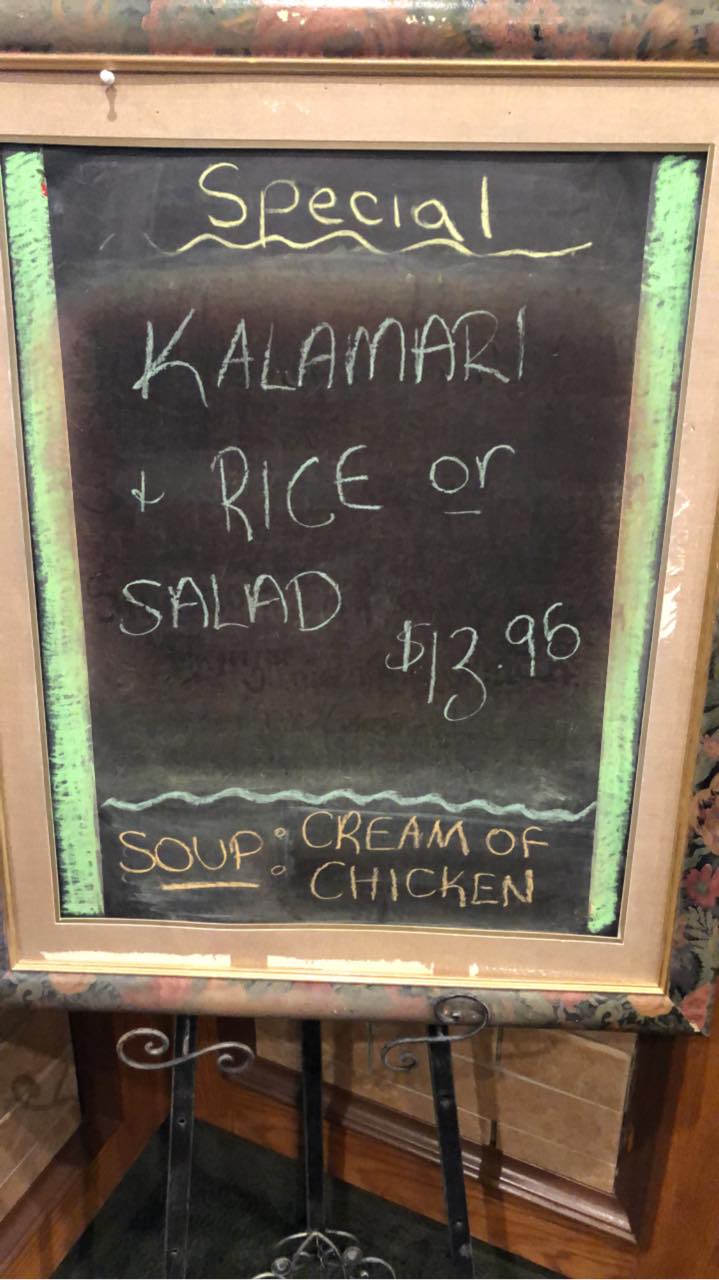 Special
KALAMARI
+ RICE or
SALAD
$13.95
SOUP: CREAM OF
CHICKEN